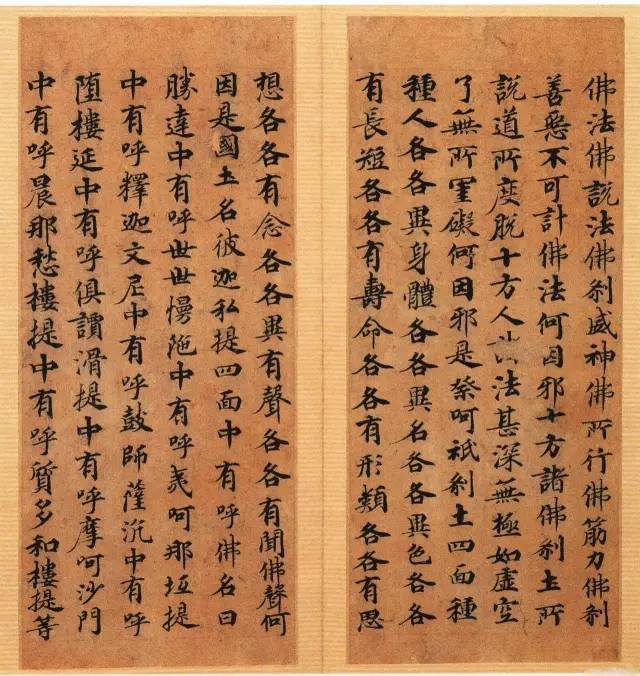 佛法佛說法佛剎威神佛所行佛筋力佛剎
善惡不可計佛法何因邪十方諸佛剎土所
說道所度脫十方人法甚深無極如虛空
了無所罣礙何因邪是呵祇剎土四面種
種人各各異身體各各異名各各異色各各
有長短各各有壽命各各有形類各各有思
想各各有念各各異有聲各各有聞佛聲何
因是國土名彼迦私提四面中有呼佛名曰
勝達中有呼世世慢陁中有呼夷呵那坻提
中有呼釋迦文尼中有呼鼓師薩沉中有呼
墮樓延中有呼俱讀滑提中有呼摩呵沙門
中有呼晨那愁樓提中有呼質多和樓提等